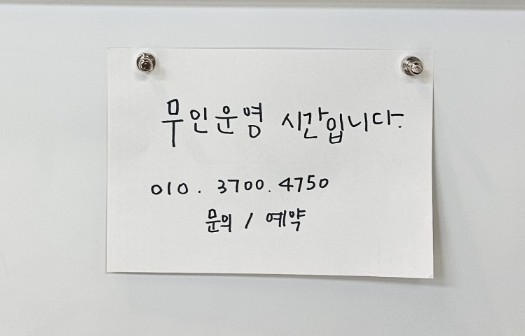 무인운영 시간입니다.
010. 3700. 4750
문의 / 예약